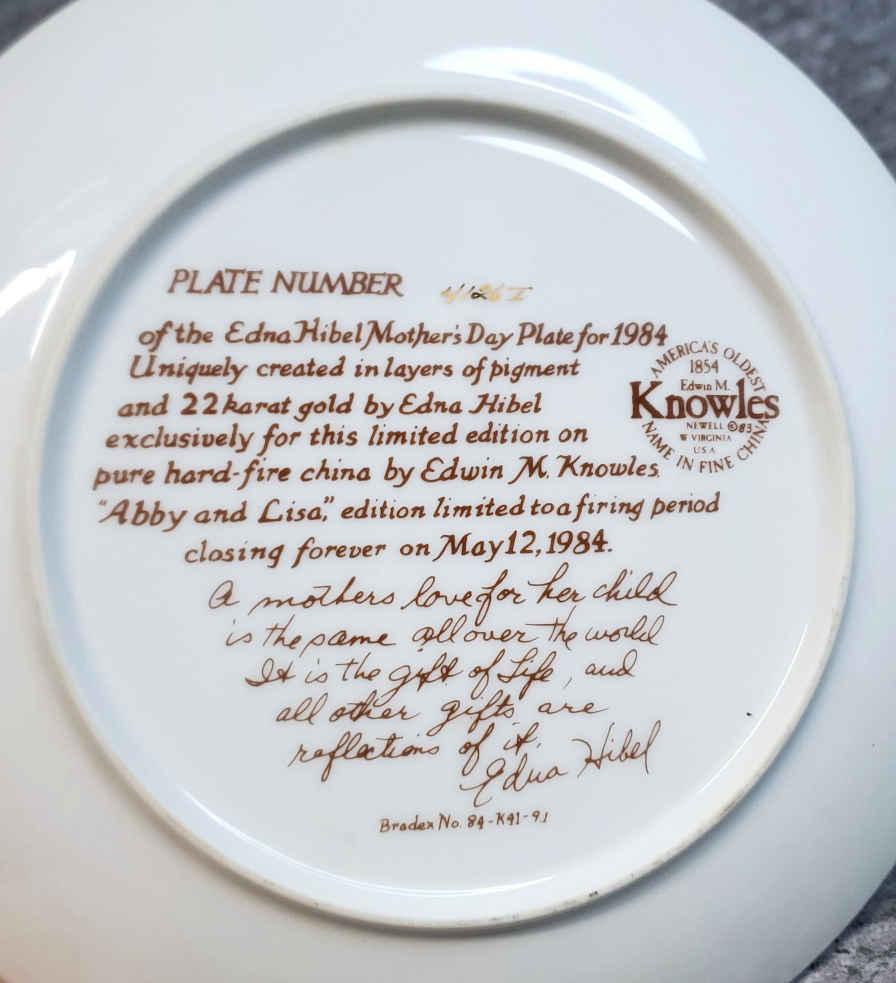 PLATE NUMBER
of the Edna Hibel Mother's Day Plate for 1984
Uniquely created in layers of pigment
and 22 karat gold by Edna Hibel
exclusively for this limited edition on
pure hard-fire china by Edwin M. Knowles.
"Abby and Lisa", edition limited to a firing period
closing forever on May 12, 1984.
AMERICA'S OLDEST
1854
Edwin M.
Knowles
NEWELL © 83
W VIRGINIA
U S A
NAME IN FINE CHINA
A mothers love for her child
is the same all over the world
It is the gift of Life, and
all other gifts are
reflections of it.
Edna Hibel
Bradex No. 84-K41-9.1